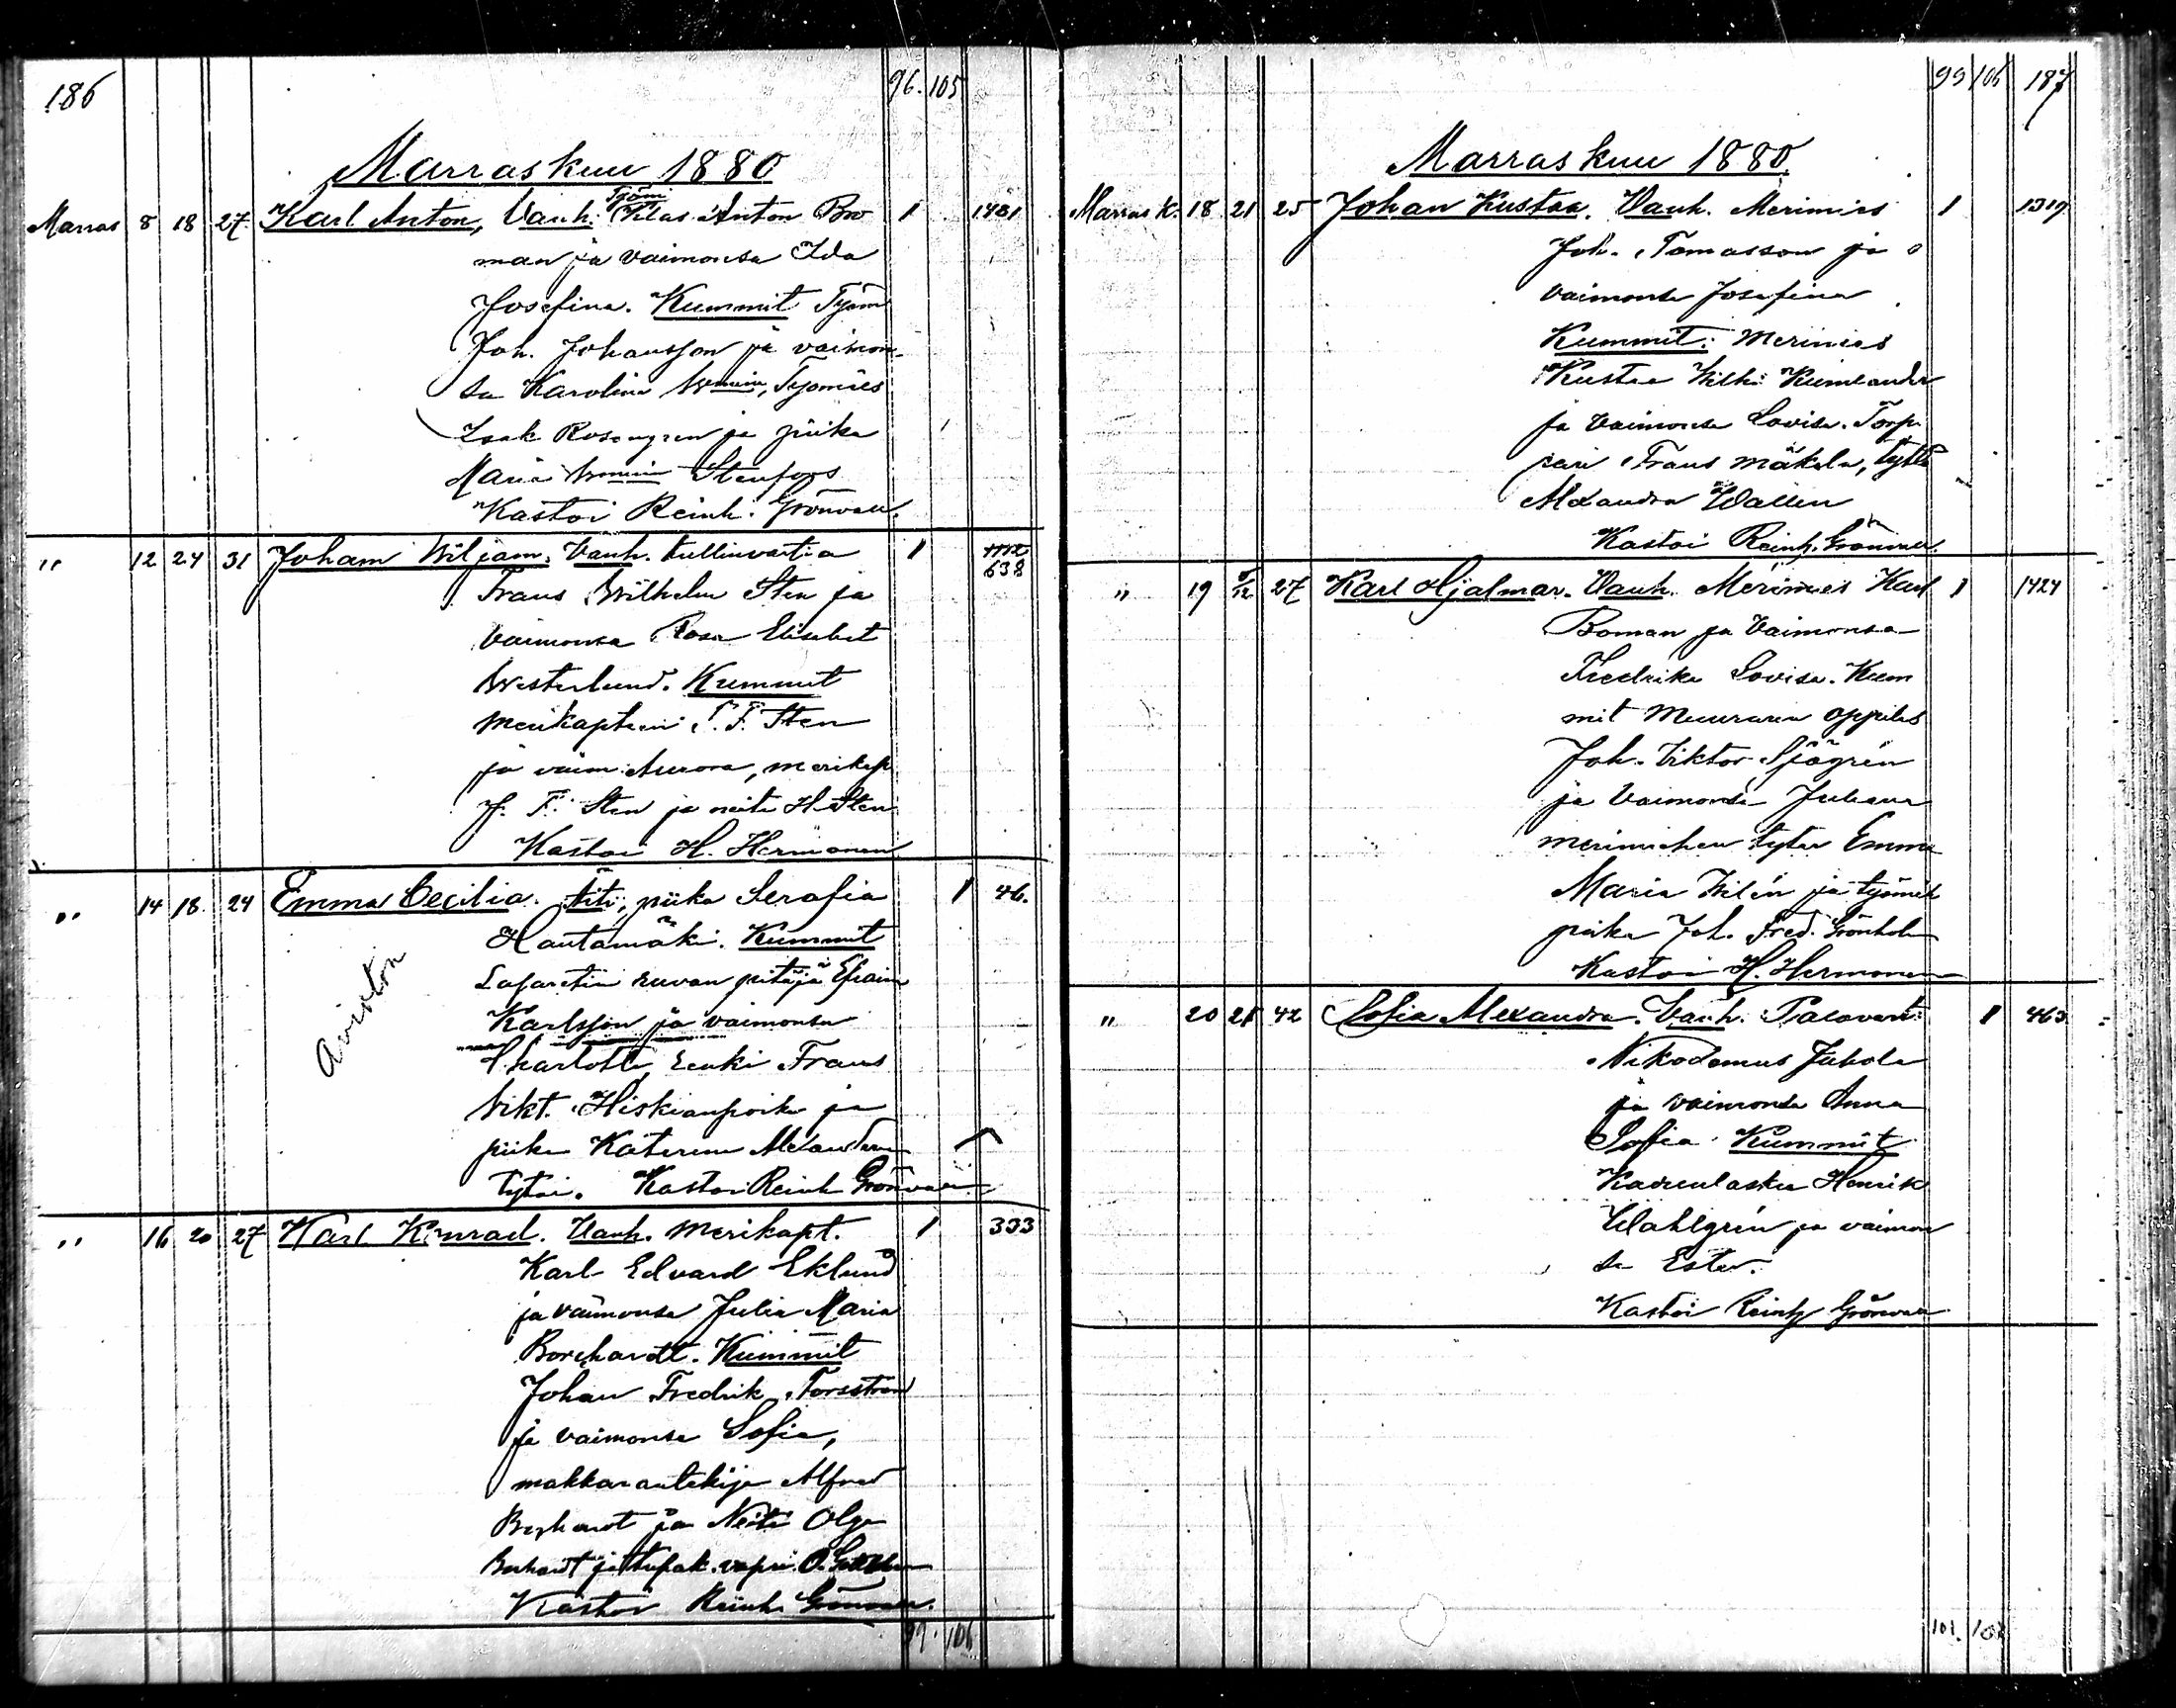 186 96. 105
Marraskuu 1880
Työm
Marras 8 18 27. Karl Anton, Vanh. Anton Bo 1 1481
man ja vaimonsa Ida
Josefina. Kummit Työm
Joh. Johansson ja vaimon-
sa Karolina Työmies
Isak Rosengren ja piika
Maria Stenfors
Kastoi Reinh. Grönvall.
" 12 24 31 Joham Wiljam. Vanh. tullinvartia 1
638
Frans Wilhelm Sten ja
vaimonsa Rosa Elisabet
Westerlund. Kummit
merikapteeni F. Sten
ja vaim. Aurora, merikap
J. F. Sten ja neiti H. Sten
Kastoi H. Hermonen
" 14 18 24 Emma Cecilia. Äiti, piika Serafia 1 46.
Hautamäki. Kummit
Lasaretin ruvan pitäjä Efraim
Avioton
Karlsson ja vaimonsa
Charlotte, renki Frans
Vikt. Hiskianpoika ja
piika Katerina Alexanderin
tytär. Kastoi Reinh Grönvall
" 16 20 27 Karl Konrad. Vanh. Merikapt. 1 333
Karl Edvard Eklund
ja vaimonsa Julia Maria
Borchardt. Kummit
Johan Fredrik Forsström
ja vaimonsa Sofia,
makkarantekijä Alfred
Borhardt ja Neiti Olga
Borhardt ja tupak. O.
Kastoi Reinh. Grönvall.
99. 106
99 106 187
Marraskuu 1880.
Marras k. 18 21 25 Johan Kustaa. Vanh. Merimies 1 1319
Joh. Tomasson ja
vaimonsa Josefina
Kummit: Merimies
Kustaa Wilh. Kumlander
ja vaimonsa Lovisa. Torp-
pari Frans Mäkelä, tyttö
Alexandra Wallin
Kastoi Reinh. Grönvall.
" 19 5/12 27 Karl Hjalmar. Vanh. Merimies Karl 1 1424
Boman ja Vaimonsa
Fredrika Lovisa. Kum
mit Muurarin oppilas
Joh. Viktor Sjögrén
ja Vaimonsa Juliana
merimiehen tytär Emma
Maria Wilén ja työmih
poika Joh. Fred. Grönholm
Kastoi H. Hermonen
" 20 21 42 Sofia Alexandra. Vanh. Palovart. 1 463
Nikodemus Juhola
ja vaimonsa Anna
Sofia. Kummit
Kadunlaskia Henrik
Wahlgrén ja vaimon
sa Ester.
Kastoi Reinh Grönvall
101. 108